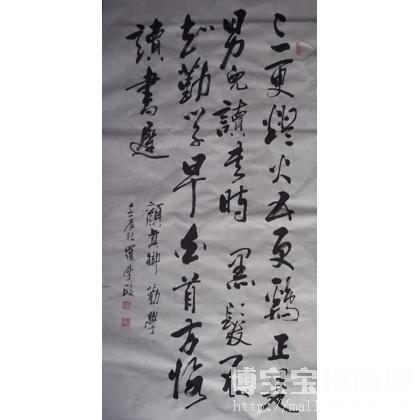 三更燈火五更鷄正是
男兒讀书時黑髮不
知勤学早白首方悔
讀書遲
顏真卿勤學
壬辰秋羅學政
博宝
http://mall